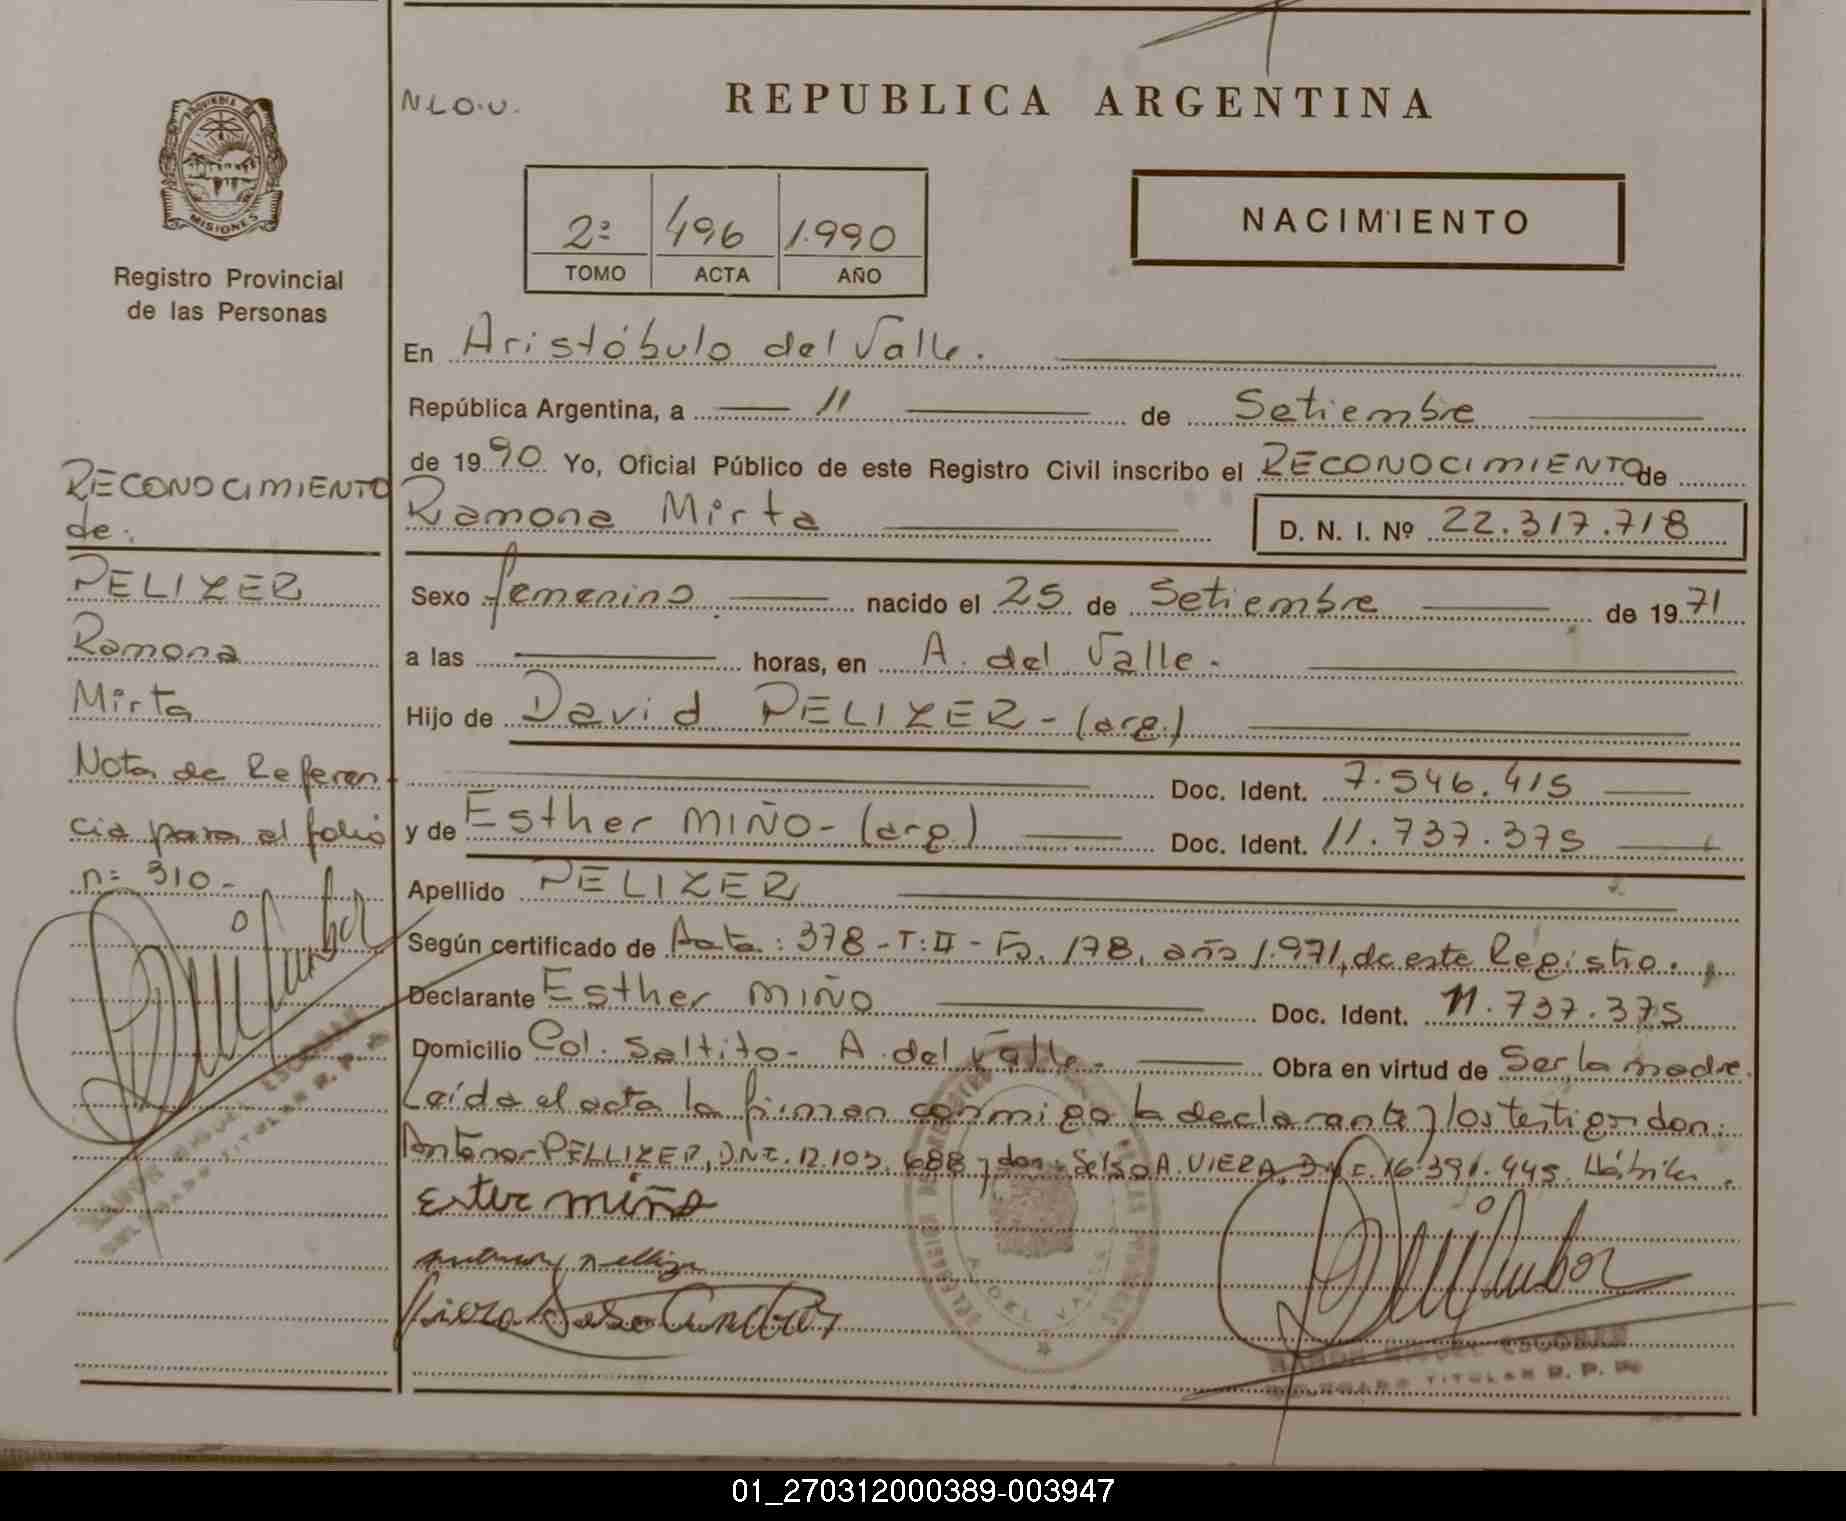 N.L.O.U.
REPUBLICA ARGENTINA
PROVINCIA DE
MISIONES
Registro Provincial
de las Personas
2º 496 1.990
TOMO ACTA AÑO
NACIMIENTO
En Aristóbulo del Valle.
República Argentina, a 11 de Setiembre
de 1990 Yo, Oficial Público de este Registro Civil inscribo el RECONOCIMIENTO de
Ramona Mirta D. N. I. Nº 22.317.718
Sexo femenino nacido el 25 de Setiembre de 1971
a las horas, en A. del Valle.
Hijo de David PELIZER - (arg.)
Doc. Ident. 7.546.415
y de Esther MIÑO - (arg.) Doc. Ident. 11.737.375
Apellido PELIZER
Según certificado de Acta: 378 - T: II - Fo. 178, año 1.971, de este Registro.
Declarante Esther MIÑO Doc. Ident. 11.737.375
Domicilio Col. Saltito - A. del Valle. Obra en virtud de Ser la madre.
Leída el acta la firman conmigo la declarante y los testigos don:
Antenor PELLIZER, DNI. 12.103.688 y don: Selso A. VIERA, DNI. 16.391.445. Hábiles.
Ester miño
RAMON MIGUEL ESCOBAR
DELEGADO TITULAR R. P. P.
RECONOCIMIENTO
de:
PELIZER
Ramona
Mirta
Nota de Referen-
cia para el folio
nº 310-
RAMON MIGUEL ESCOBAR
DELEGADO TITULAR R. P. P.
01_270312000389-003947